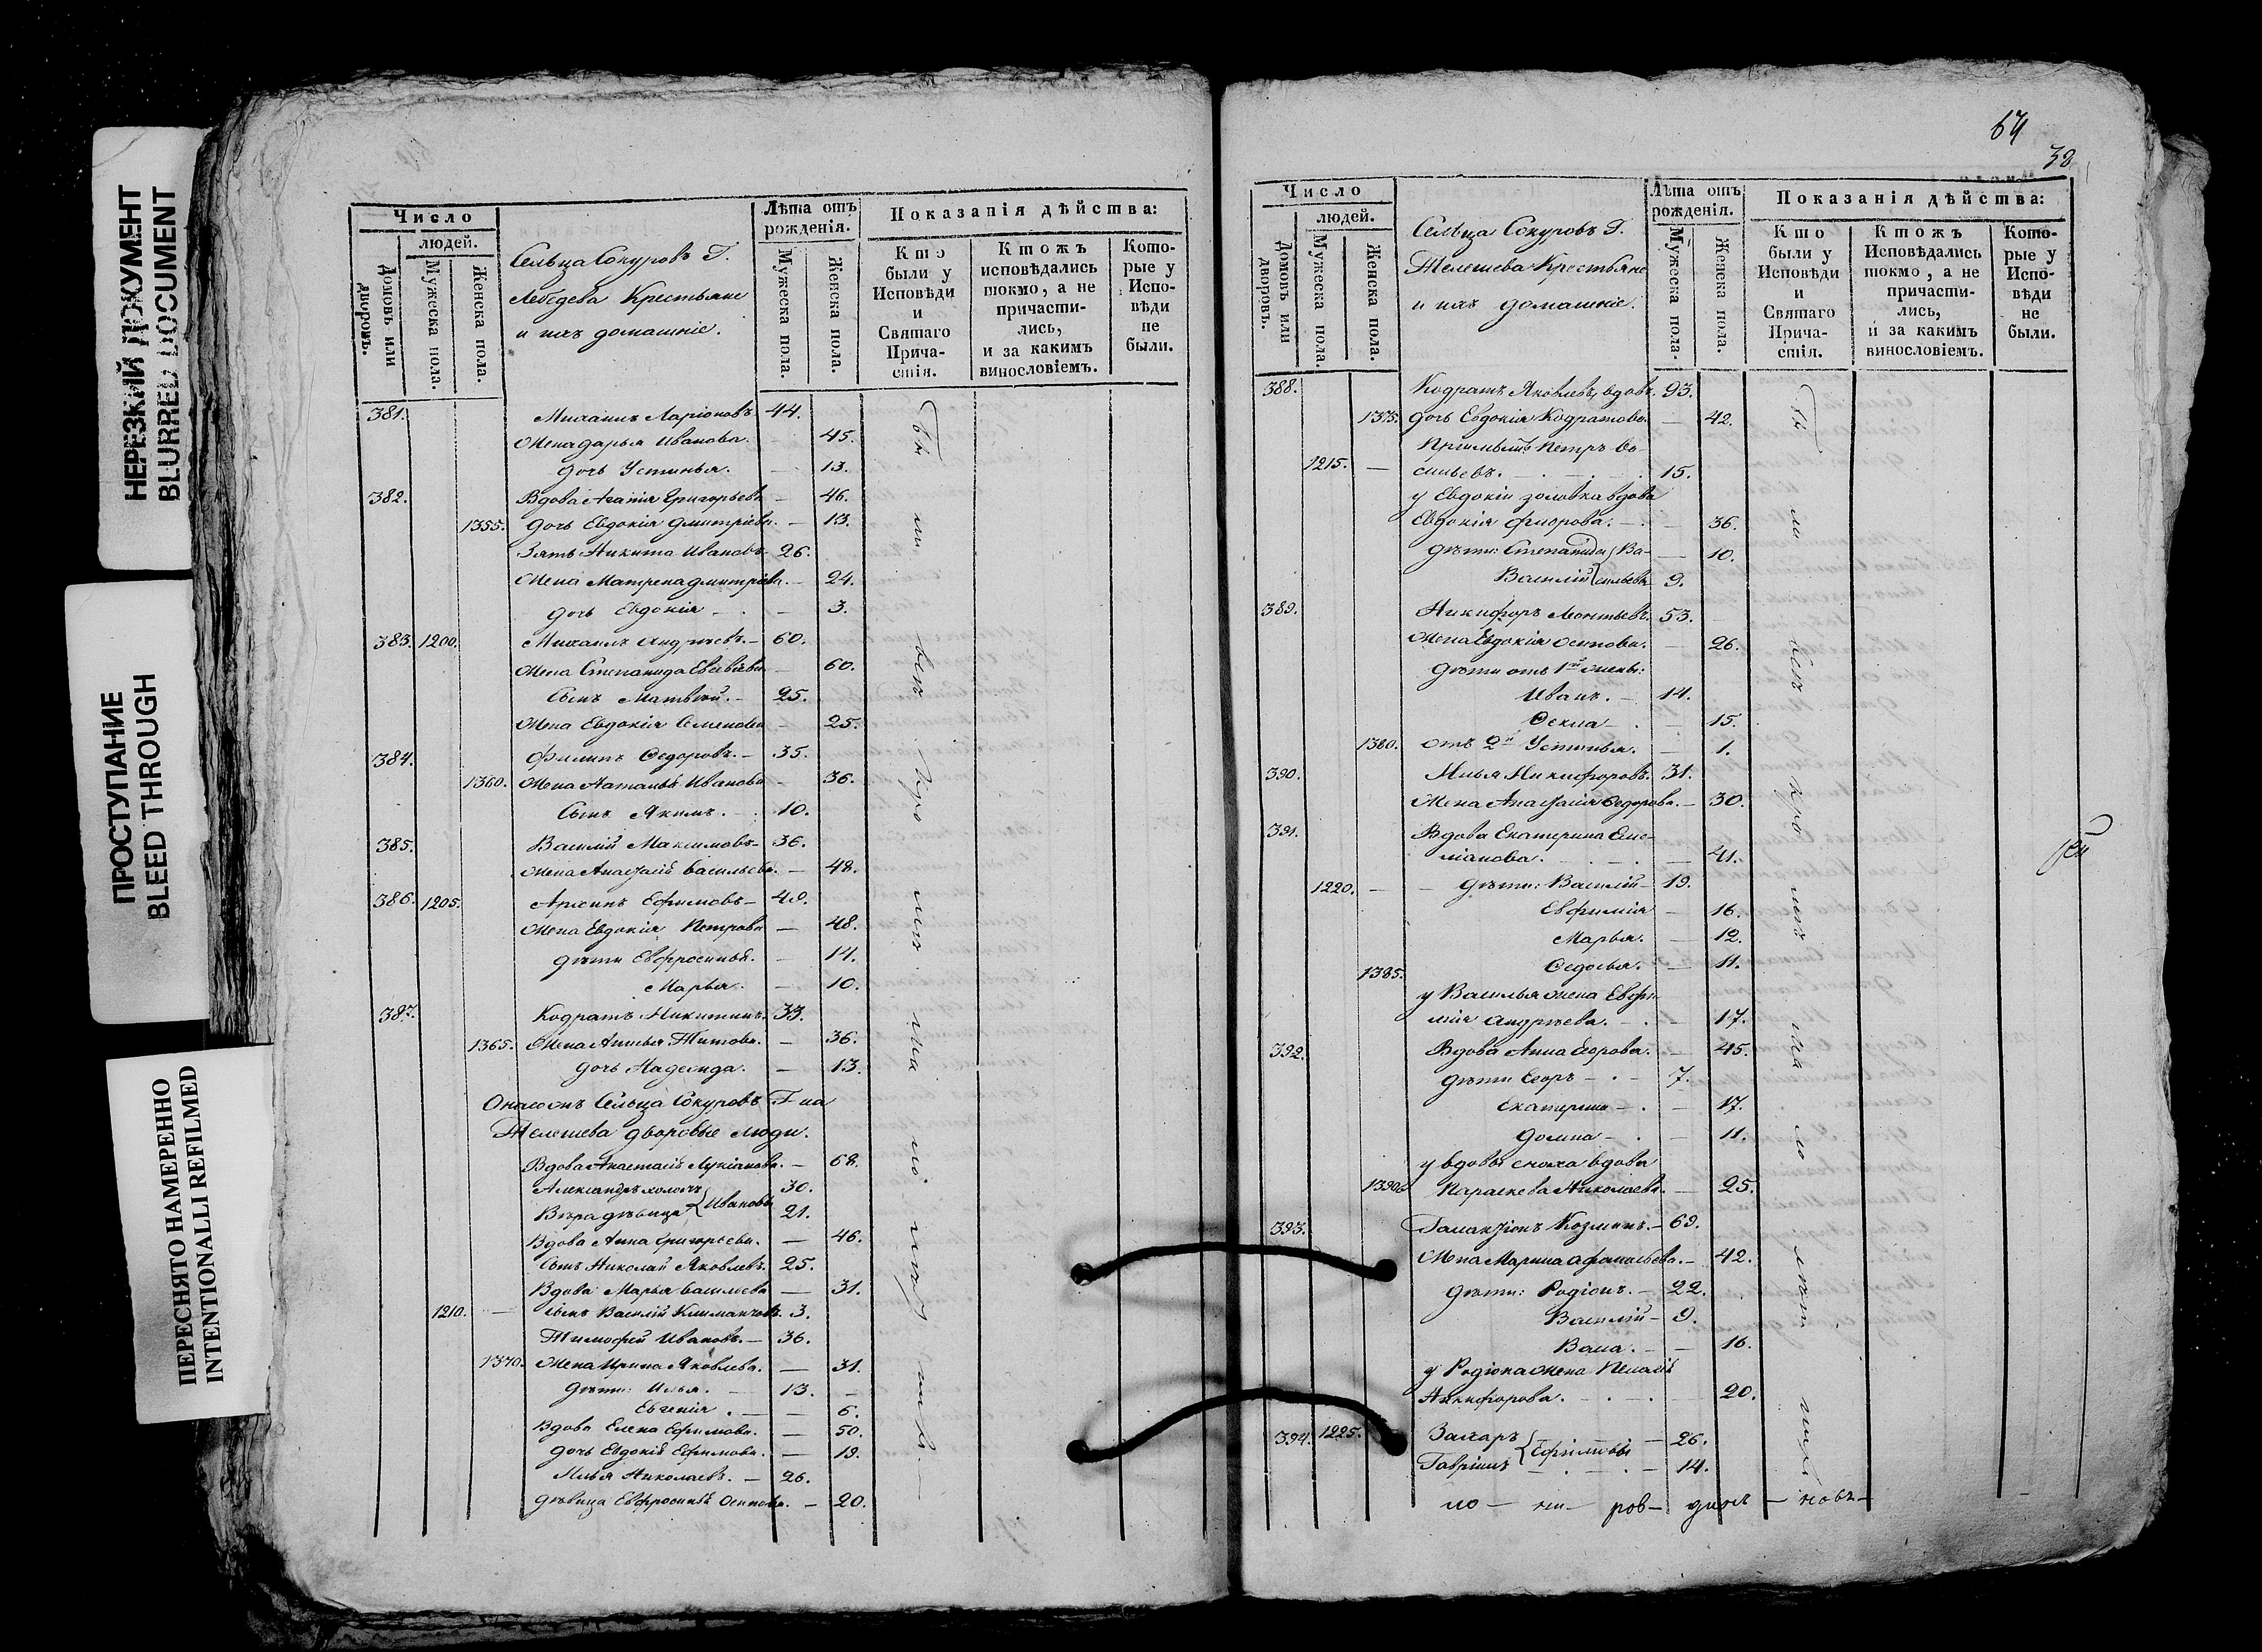 НЕРЕЗКИЙ ДОКУМЕНТ
BLURRED DOCUMENT
ПРОСТУПАНИЕ
BLEED THROUGH
ПЕРЕСНЯТО НАМЕРЕННО
INTENTIONALLI REFILMED
Число
людей.
Домовъ или дворовъ.
Мужеска пола.
Женска пола.
Сельца Сокуровъ Г.
Лебедева Крестьяне
и ихъ домашніе.
Лѣта отъ рожденія.
Мужеска пола.
Женска пола.
Показанія дѣйства:
Кто были у Исповѣди и Святаго Прича- стія.
Ктожъ исповѣдались токмо, а не причасти- лись, и за какимъ винословіемъ.
Кото- рые у Испо- вѣди не были.
381. Михаилъ Ларіоновъ 44.
Жена Дарья Иванова. 45.
Дочь Устинья. — 13.
382. Вдова Агапія Григорьева — 46.
1355. Дочь Евдокія Дмитріева. — 13.
Зять Никита Ивановъ — 26.
Жена Матрена Дмитріева. — 24.
Дочь Евдокія — 3.
383. 1200. Михаилъ Андреевъ. — 60.
Жена Степанида — 60.
Сынъ Матвѣй. — 25.
Жена Евдокія Семенова — 25.
384. Филипъ Ѳедоровъ. — 35.
1360. Жена Наталья Иванова — 36.
Сынъ Якимъ. 10.
385. Василій Максимовъ — 36.
Жена Анастасія Васильева. — 48.
386. 1205. Ефимовъ — 49.
Жена Евдокія Петрова — 48.
Дѣти Евфросинья. — 14.
Марья. — 10.
387. Кодратъ Никитинъ. 33.
1365. Жена Титова. — 36.
Дочь Надежда. — 13.
Онаго жъ Сельца Сокуровъ Г-на
Телешева дворовые люди.
Вдова Анастасія Лукіанова. — 68.
Александръ холостъ 30.
Вѣра дѣвица Ивановы 21.
Вдова Анна Григорьева. — 46.
Сынъ Николай Яковлевъ. 25.
Вдова Марья Васильева — 31.
1210. — Сынъ Василій 3.
Тимофей Ивановъ. — 36.
1370. Жена Ирина Яковлева. — 31.
Дѣти: Илья. — 13. —
Евгенія. — 6.
Вдова Елена Ефимова. — 50.
Дочь Евдокія Ефимова. — 19.
Илья Николаевъ. — 26.
Дѣвица Евфросинья Осипова. — 20.
64
38
Число
людей.
Домовъ или дворовъ.
Мужеска пола.
Женска пола.
Сельца Сокуровъ Г.
Телешева Крестьяне
и ихъ домашніе.
Лѣта отъ рожденія.
Мужеска пола.
Женска пола.
Показанія дѣйства:
Кто были у Исповѣди и Святаго Прича- стія.
Ктожъ Исповѣдались токмо, а не причасти- лись, и за какимъ винословіемъ.
Кото- рые у Испо- вѣди не были.
388. Кодратъ Яковлевъ, вдовъ. 93.
1375. Дочь Евдокія Кодратова. — 42.
Пріимышъ Петръ Ва-
1215. — сильевъ. 15.
у Евдокіи золовка вдова
Евдокія — 36.
Дѣти: Степанида Ва- — 10.
Василій сильевы 9.
389. Никифоръ Леонтьевъ. 53.
Жена Евдокія Осипова. — 26.
Дѣти отъ 1й жены:
Иванъ. — 14.
Ѳекла — 15.
1380. отъ 2й Устинья. — 1.
390. Илья Никифоровъ. 31.
Жена Анастасія Ѳедорова. — 30.
391. Вдова Екатерина Еме-
ліанова. — 41.
1220. — Дѣти: Василій — 19.
Евфимія — 16.
Марья. — 12.
1385. Ѳедосья. — 11.
у Василья жена Евфи-
мія Андреева. — 17.
392. Вдова Анна Егорова. — 45.
Дѣти Егоръ — 7.
Екатерина — 17.
Домна — 11.
у вдовы сноха вдова
1390. Параскева Николаева. — 25.
393. Галактіонъ Козминъ. — 69.
Жена Марина Афанасьева. — 42.
Дѣти: Родіонъ. — 22.
Василій — 9.
— 16.
у Родіона жена Пелагія
Никифорова. — 20.
394. 1225. Захаръ — 26.
Гавріилъ Ефимовы — 14.